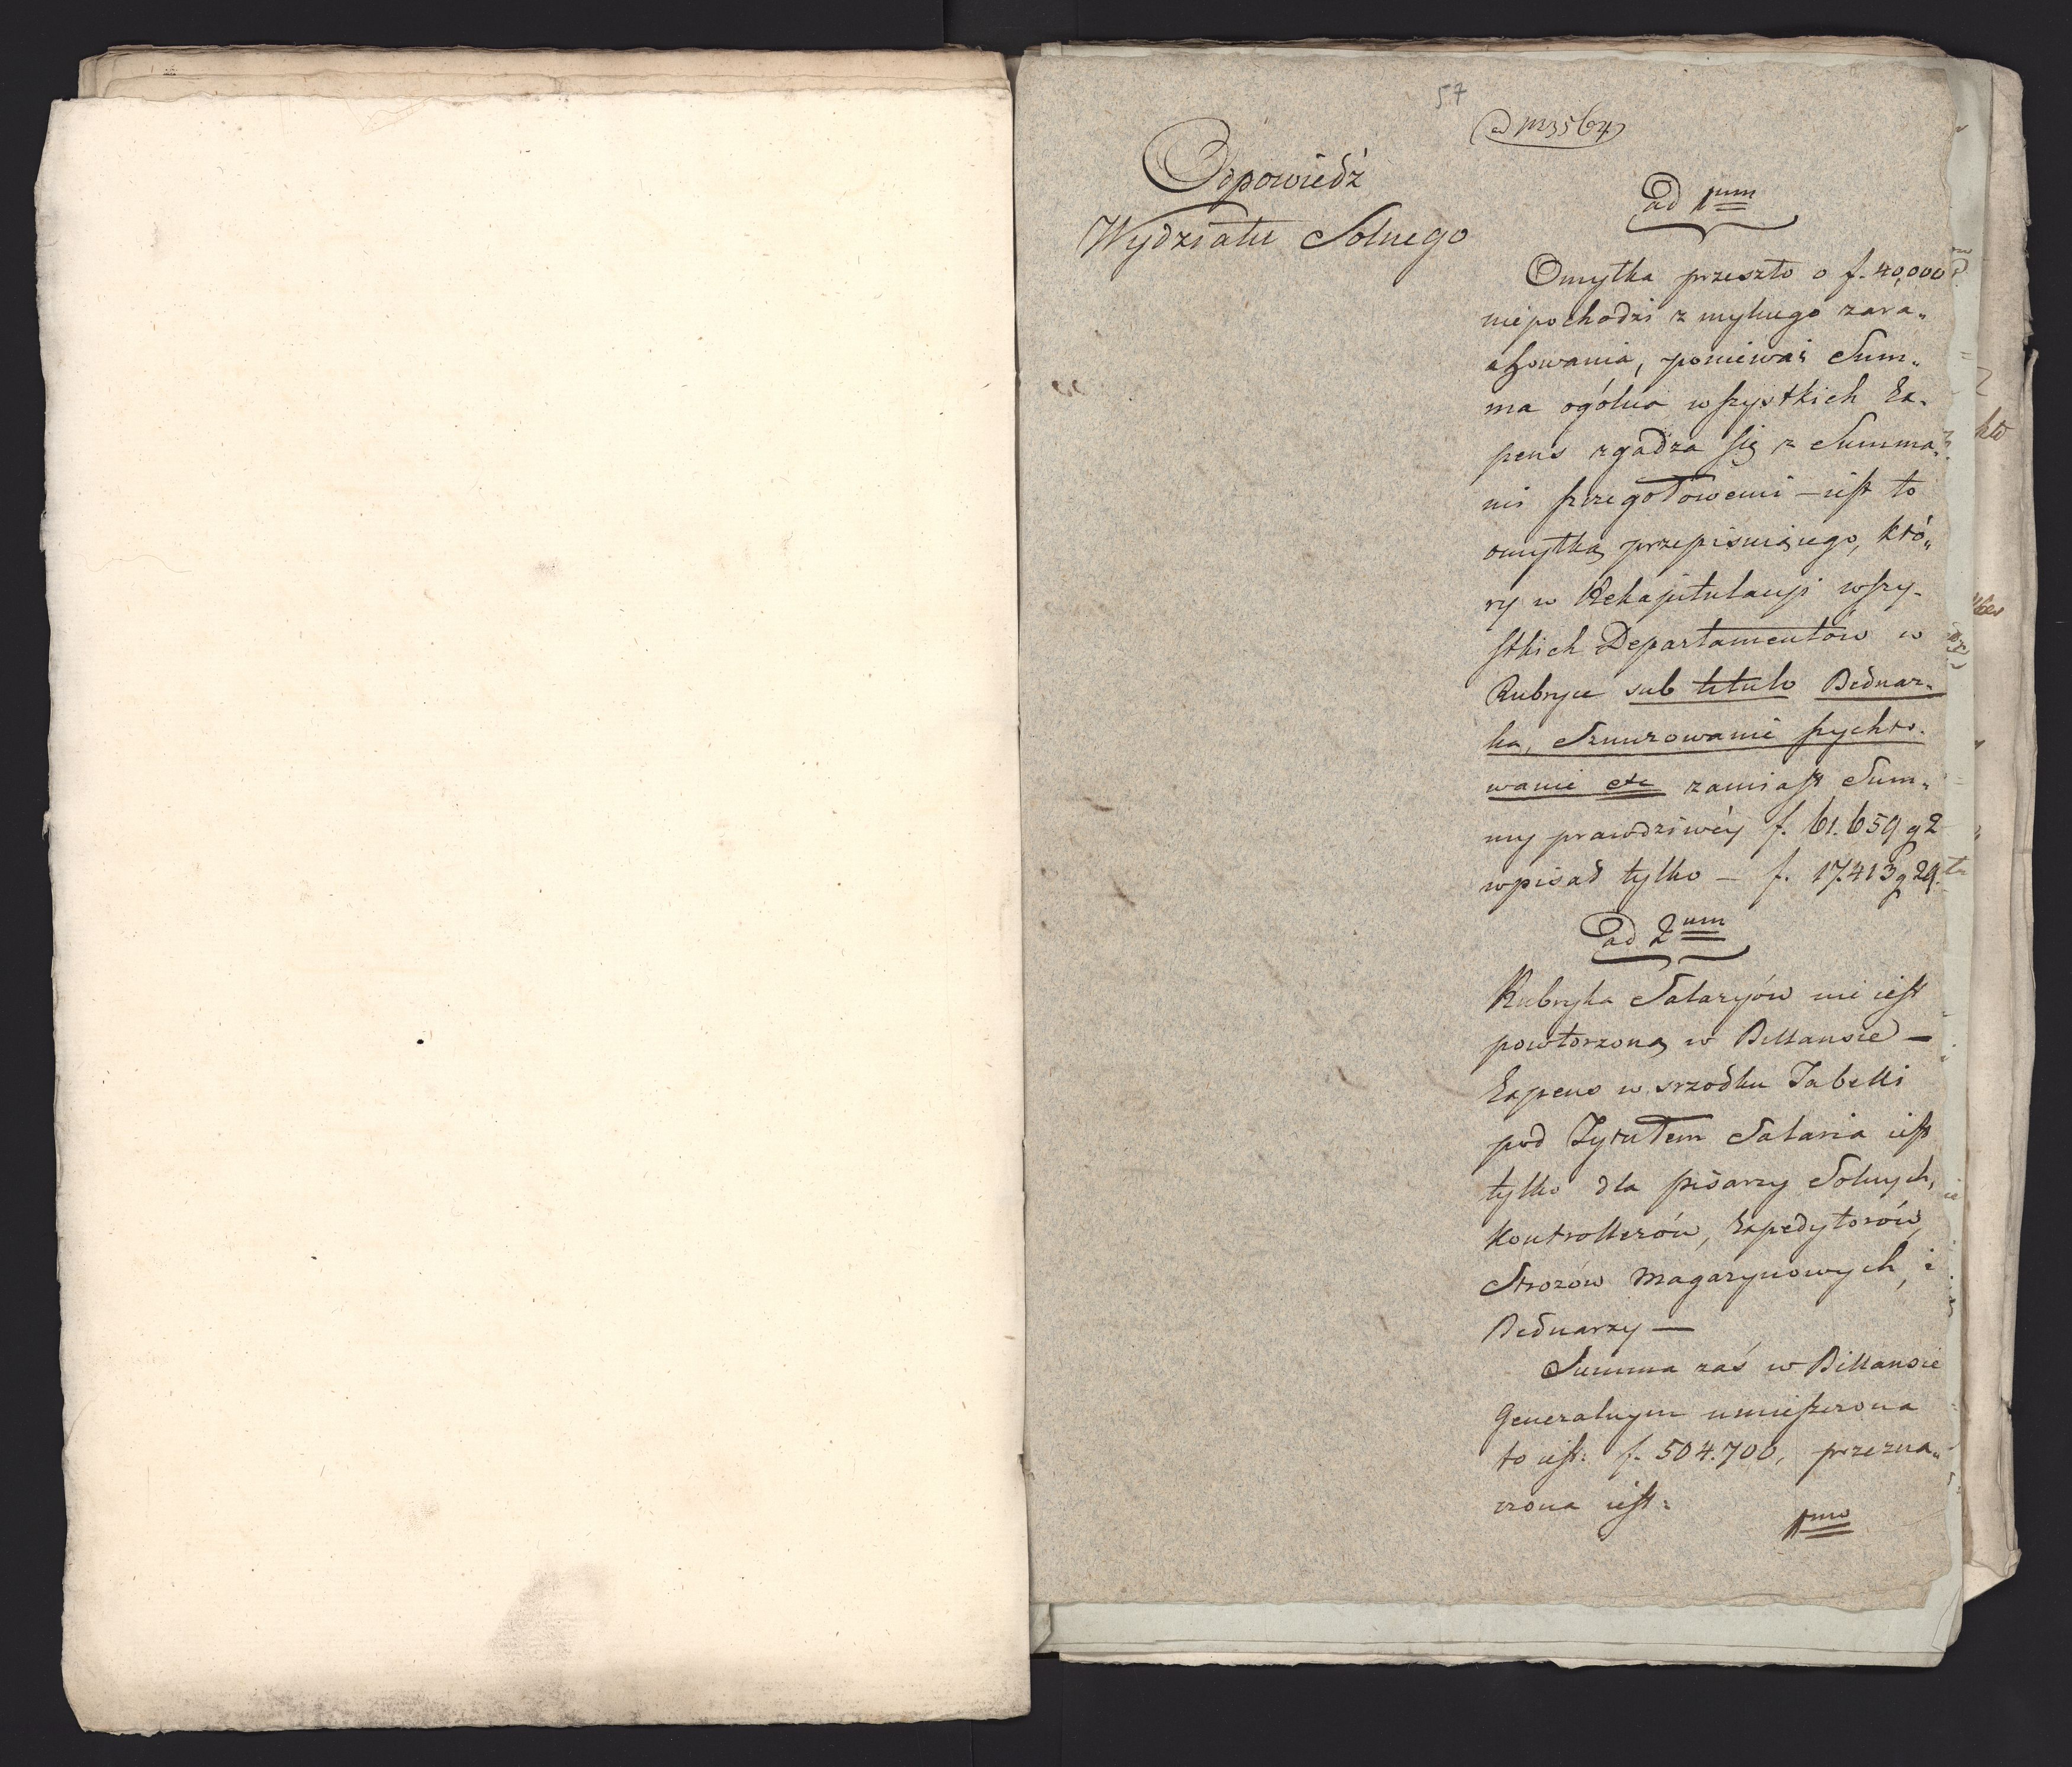 57
ad Nr 3564
Odpowiedź
Wydziału Solnego
ad 1mum
Omyłka przeszło o f. 40,000
niepochodzi z mylnego zara„
chowania, ponieważ Sum„
ma ogólna wszystkich Ex„
pens zgadza się z Summa„
mi szczegołowemi – iest to
omyłką przepisuiącego, któ„
ry w Rekapitulacyi wszy„
stkich Departamentów w
Rubryce sub titulo Bednar„
ka, Sznurowanie szychto„
wanie etc zamiast Sum„
my prawdziwéy f. 61.659 g 2
wpisał tylko – f. 17.413 g 29.
ad 2um
Rubryka Salaryów nie iest
powtorzoną w Billansie –
Expens w srzodku Tabelli
pod Tytułem Salaria iest
tylko dla pisarzy Solnych,
Kontrollerów, Expedytorów,
Strozów Magazynowych, i
Bednarzy –
Summa zaś w Billansie
Generalnym umieszczona
to iest: f. 504.700, przezna„
czona iest:
1mo